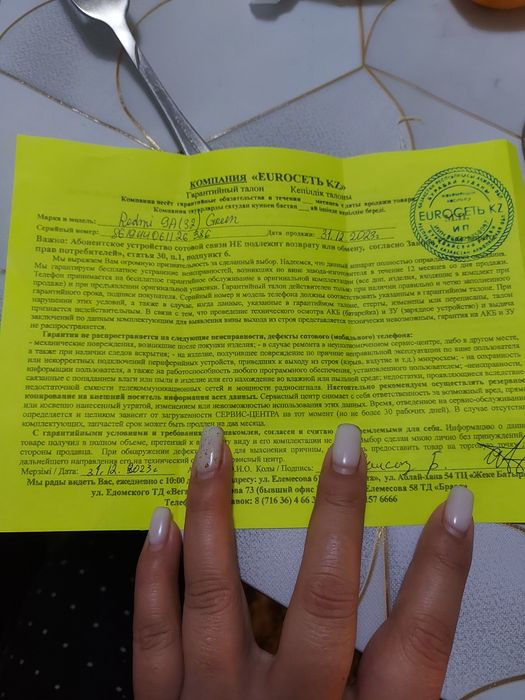 КОМПАНИЯ «EUROCETЬ KZ»
Гарантийный талон Кепілдік талоны
Компания несёт гарантийные обязательства в течении ___ месяцев с даты продажи товара
EUROCETЬ KZ
ИП
Марка и модель: Redmi 9A (32) Green
Серийный номер: Дата продажи: 31.12.2023
Важно: Абонентское устройство сотовой связи НЕ подлежит возврату или обмену, согласно
прав потребителей», статья 30, п.1, подпункт 6.
Мы выражаем Вам огромную признательность за сделанный выбор. Надеемся, что данный аппарат полностью оправдает
Мы гарантируем бесплатное устранение неисправностей, возникших по вине завода-изготовителя в течение 12 месяцев со дня продажи.
Телефон принимается на бесплатное гарантийное обслуживание в оригинальной комплектации (все изделия, входящие в комплект при
продаже) и при предъявлении оригинальной упаковки. Гарантия действительна только при наличии правильно и четко заполненного
гарантийного срока, подписи покупателя. Серийный номер и модель телефона должны соответствовать указанным в гарантийном талоне. При
нарушении этих условий, а также в случае, когда данные, указанные в гарантийном талоне, стерты, изменены или переписаны, талон
признается недействительным. В связи с тем, что проведение технического осмотра АКБ (батарейка) и ЗУ (зарядное устройство) и выдача
заключений по данным комплектующим для выявления вины выхода из строя представляется технически невозможным, гарантия на АКБ и ЗУ
не распространяется.
Гарантия не распространяется на следующие неисправности, дефекты сотового (мобильного) телефона:
- механические повреждения, возникшие после покупки изделия; - в случае ремонта в неуполномоченном сервисном-центре, либо в другом месте,
а также при наличии следов вскрытия; - на изделие, получившее повреждение по причине неправильной эксплуатации по вине пользователя
или некорректных подключений периферийных устройств, приведших к выходу из строя (крыл, вздутие и т.д.) микросхем; - на сохранность
информации пользователя, а также на работоспособность любого программного обеспечения, установленного пользователем; -неисправности,
связанные с попаданием влаги или пыли в изделие или его нахождение во влажной или пыльной среде; недостатки, проявляющиеся вследствие
недостаточной емкости телекоммуникационных сетей и мощности радиосигнала. Настоятельно рекомендуем осуществлять резервное
копирование на внешний носитель информации всех данных. Сервисный центр снимает с себя ответственность за возможный вред, прямо
или косвенно нанесенный утратой, изменением или невозможностью использования этих данных. Время, отведенное на сервис-обслуживание
определяется и целиком зависит от загруженности СЕРВИС-ЦЕНТРА на тот момент (но не более 30 рабочих дней). В случае отсутствия
комплектующих, запчастей срок может быть продлен на два месяца.
С гарантийными условиями и требованиями ознакомлен, согласен и считаю приемлемыми для себя. Информацию о данном
товаре получил в полном объеме, претензий к внешнему виду и его комплектации не имею. Выбор сделан мною лично без принуждения со
стороны продавца. При обнаружении дефекта для выяснения причины, предоставить товар на торговую точку для
дальнейшего направления его на технический сервисный центр.
Мерзімі / Дата: 31.12.2023г Ф.И.О. Қолы / Подпись:
Мы рады видеть Вас, ежедневно с 10:00 адресу: ул. Елемесова ул. Аблай-Хана 54 ТЦ «Жеке Батыр»
ул. Едомского ТД 73 (бывший офис Елемесова 58 ТД
Телефон справок: 8 (716 36) 4 66 157 6666